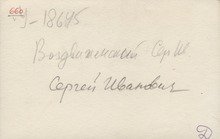 666
I-18695
Воздвиженский Сер. И.
Сергей Иванович